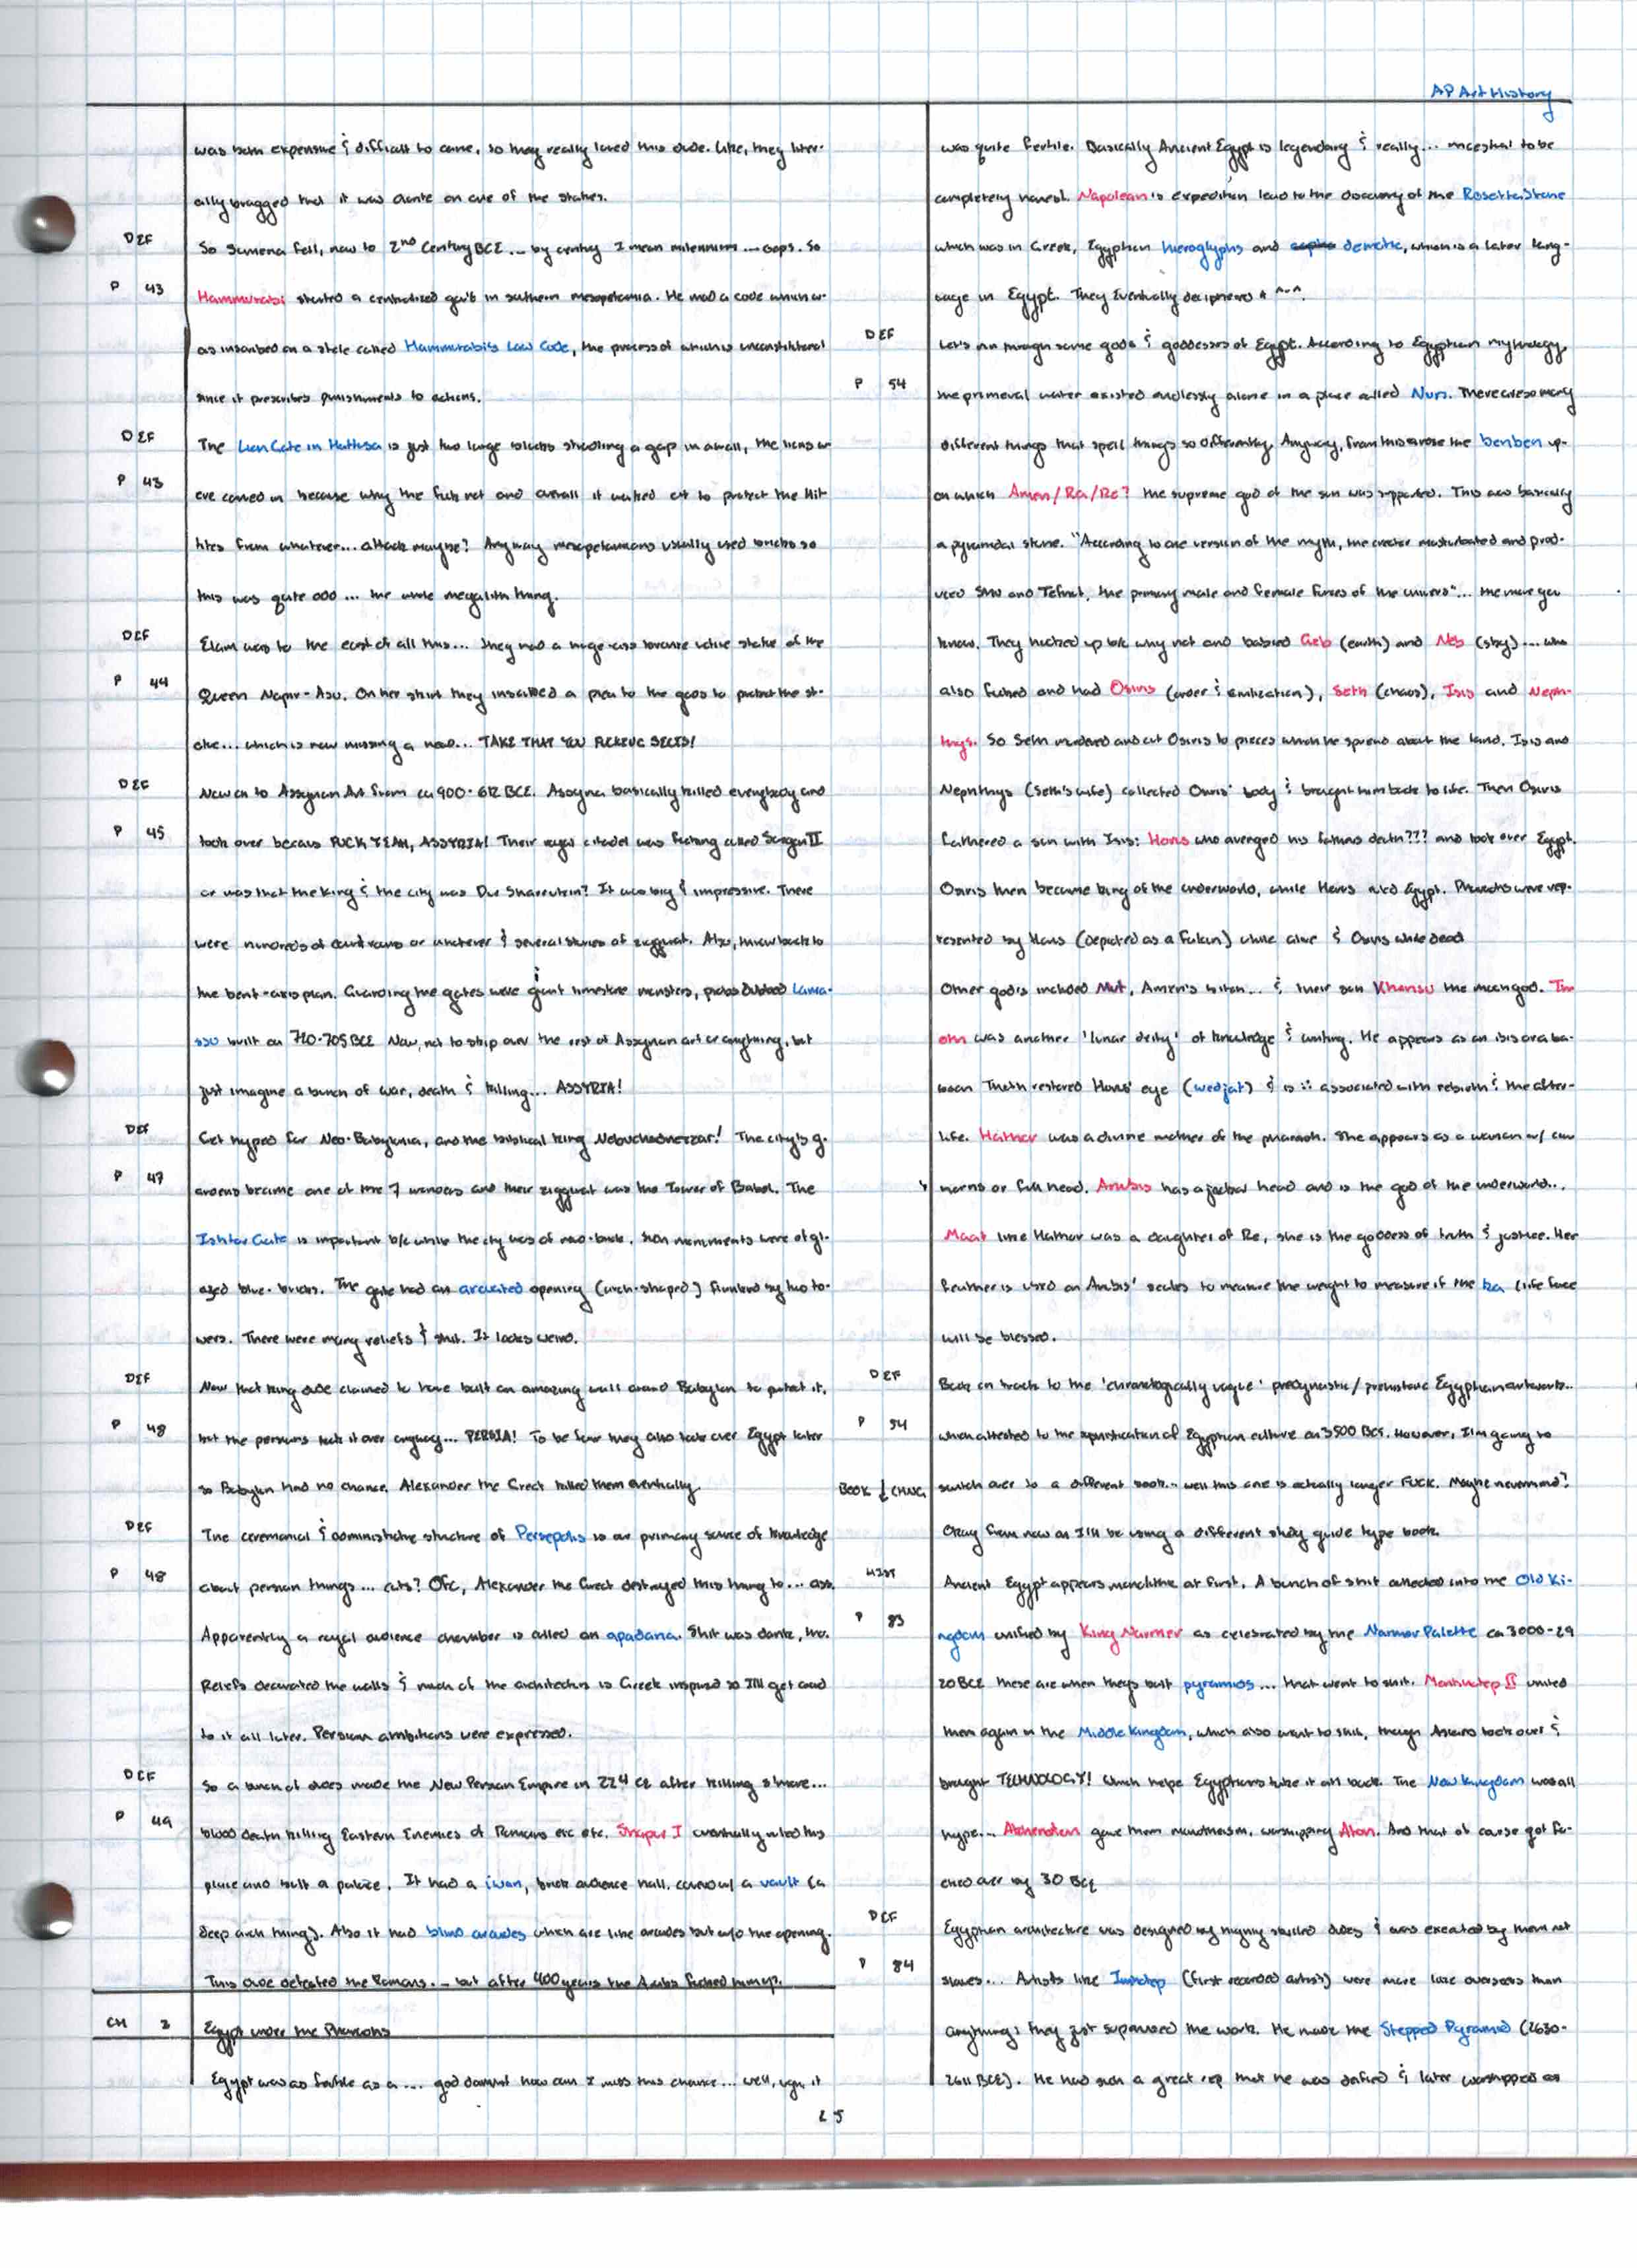 AP Art History
was both expensive & difficult to carve, so they really loved this dude. Like, they liter-
ally bragged that it was diorite on one of the statues.
DEF
So Sumeria fell, now to 2nd Century BCE... by century I mean milennium... oops. So
P 43
Hammurabi started a centralized gov't in southern mesopotamia. He had a code which w-
as inscribed on a stele called Hammurabi's Law Code, the process of which is unconstitutional
since it prescribes punishments to actions.
DEF
The Lion Gate in Hattusa is just two large blocks straddling a gap in a wall, the lions w-
P 43
ere carved in because why the fuck not and overall it worked out to protect the Hit-
tites from whatever... attack maybe? Anyway mesopotamians usually used bricks so
this was quite odd... the whole megalith thing.
DEF
Elam was to the east of all this... they had a huge-ass bronze statue of the
P 44
Queen Napir-Asu. On her skirt they inscribed a plea to the gods to protect the st-
atue... which is now missing a head... TAKE THAT YOU FUCKING
DEF
Now on to Assyrian Art from ca 900-612 BCE. Assyria basically killed everybody and
P 45
took over because FUCK YEAH, ASSYRIA! Their royal citadel was fucking called Sargon II
or was that the king & the city was Dur Sharrukin? It was big & impressive. There
were hundreds of courtyards or whatever & several stories of ziggurat. Also, throwback to
the bent-axis plan. Guarding the gates were giant limestone monsters, probs dubbed Lama-
ssu built ca 720-705 BCE Now, not to skip over the rest of Assyrian art or anything, but
just imagine a bunch of war, death & killing... ASSYRIA!
DEF
Get hyped for Neo-Babylonia, and the biblical king Nebuchadnezzar! The city's g-
P 47
ardens became one of the 7 wonders and their ziggurat was the Tower of Babel. The
Ishtar Gate is important b/c while the city was of mud-brick, monuments were of gl-
azed blue-bricks. The gate had an arcuated opening (arch-shaped) flanked by two to-
wers. There were many reliefs & shit. It looks weird.
DEF
Now that king dude claimed to have built an amazing wall around Babylon to protect it,
P 48
but the persians took it over anyway... PERSIA! To be fair they also took over Egypt later
so Babylon had no chance. Alexander the Great killed them eventually.
DEF
The ceremonial & administrative structure of Persepolis is our primary source of knowledge
P 48
about persian things... arts? Ofc, Alexander the Great destroyed this thing to... ass.
Apparently a royal audience chamber is called an apadana. Shit was dank, tho.
Reliefs decorated the walls & much of the architecture is Greek inspired so I'll get around
to it all later. Persian ambitions were expressed.
DEF
So a bunch of dudes made the New Persian Empire in 224 CE after killing s'more...
P 49
blood death killing Eastern Enemies of Romans etc etc. Shapur I eventually ruled this
place and built a palace. It had a iwan, brick audience hall, covered w/ a vault (a
deep arch thing). Also it had blind arcades which are like arcades but w/o the opening.
This dude defeated the Romans... but after 400 years the Arabs fucked him up.
CH 3
Egypt under the Pharaohs
Egypt was as fertile as a... god damnit how can I miss this chance... well, ugh, it
was quite fertile. Basically Ancient Egypt is legendary & really... ancestral to be
completely honest. Napolean's expedition lead to the discovery of the Rosetta Stone
which was in Greek, Egyptian hieroglyphs and demotic, which is a later lang-
uage in Egypt. They Eventually deciphered it ^-^.
DEF
Let's run through some gods & goddesses of Egypt. According to Egyptian mythology,
P 54
the primeval water existed endlessly alone in a place called Nun. There are so many
different things that spell things so differently. Anyway, from this arose the benben up-
on which Amen/Ra/Re? the supreme god of the sun was supported. This was basically
a pyramidal stone. "According to one version of the myth, the creator masturbated and prod-
uced Shu and Tefnut, the primary male and female forces of the universe"... the more you
know. They hooked up b/c why not and babied Geb (earth) and Neb (sky)... who
also fucked and had Osiris (order & civilization), Seth (chaos), Isis and Neph-
thys. So Seth murdered and cut Osiris to pieces which he spread about the land. Isis and
Nephthys (Seth's wife) collected Osiris' body & brought him back to life. Then Osiris
fathered a son with Isis: Horus who avenged his fathers death??? and took over Egypt.
Osiris then became king of the underworld, while Horus ruled Egypt. Pharaohs were rep-
resented by Horus (depicted as a falcon) while alive & Osiris while dead
Other gods included Mut, Amen's bitch... & their son Khonsu the moon god. Th-
oth was another 'lunar deity' of knowledge & writing. He appears as an ibis or a ba-
boon Thoth restored Horus' eye (wedjat) & is ∴ associated with rebirth & the after-
life. Hathor was a divine mother of the pharaoh. She appears as a woman w/ cow
horns or full head. Anubis has a jackal head and is the god of the underworld...
Maat like Hathor was a daughter of Re, she is the goddess of truth & justice. Her
feather is used on Anubis' scales to measure the weight to measure if the ka (life force
will be blessed.
DEF
Back on track to the 'chronologically vague' predynastic/prehistoric Egyptian artwork...
P 54
when attested to the sophistication of Egyptian culture ca 3500 BCE. However, I'm going to
BOOK ↓ CHNG
switch over to a different book... well this one is actually longer FUCK. Maybe nevermind?
Okay from now on I'll be using a different study guide type book.
HIST
Ancient Egypt appears monolithic at first. A bunch of shit collected into the Old Ki-
P 83
ngdom unified by King Narmer as celebrated by the Narmer Palette ca 3000-29
20 BCE these are when they built pyramids... that went to shit. Mentuhotep II united
them again in the Middle Kingdom, which also went to shit, though Asians took over &
brought TECHNOLOGY! Which helpe Egyptians take it all back. The New Kingdom was all
hype... Akhenaten gave them monotheism, worshipping Aton. And that of course got fu-
cked over by 30 BCE
DEF
Egyptian architecture was designed by highly skilled dudes & was executed by them not
P 84
slaves... Artists like Imhotep (first recorded artist) were more like overseers than
anything; they just supervised the work. He made the Stepped Pyramid (2630-
2611 BCE). He had such a great rep that he was deified & later worshipped as
25